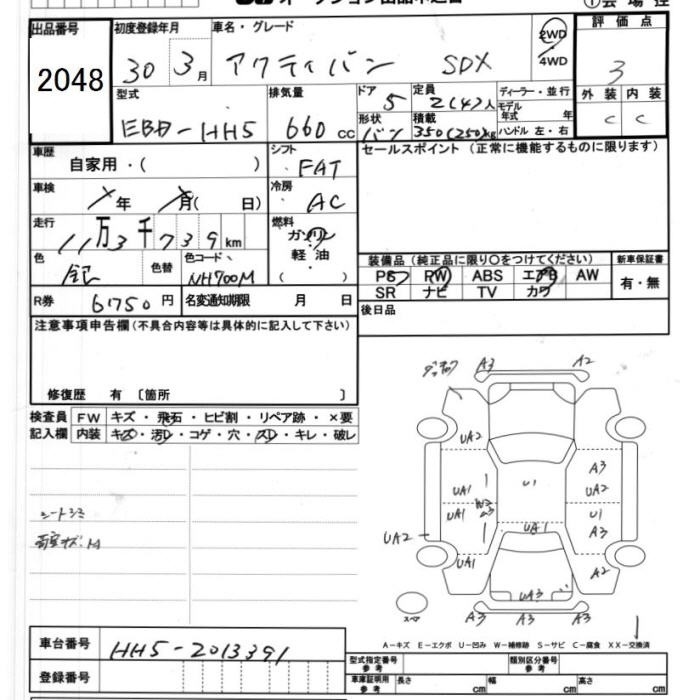 出品番号 初度登録年月 車名・グレード 2WD 評価点
2048 30年 3月 アクティバン SDX ・4WD 3
型式 排気量 ドア 定員 ディーラー・並行 外装 内装
EBD-HH5 660cc 5 2(4)人 モデル年式 年 C C
形状 積載 ハンドル 左・右
バン 350(250)kg
車歴 シフト セールスポイント (正常に機能するものに限ります)
自家用・( ) FAT
車検 冷房
年 月( 日) AC
走行 燃料
11万3千739km ガソリン
色 色替 色コード 軽油 装備品 (純正品に限り〇をつけてください) 新車保証書
銀 NH700M ( ) PS RW ABS エアB AW 有・無
SR ナビ TV カワ
R券 6750円 名変通知期限 月 日 後日品
注意事項申告欄 (不具合内容等は具体的に記入して下さい)
修復歴 有 〔箇所 〕
検査員 FW キズ・飛石・ヒビ割・リペア跡・×要
記入欄 内装 キズ・汚レ・コゲ・穴・スレ・キレ・破レ
シートシミ
A3 A2
UA2
A3
UA1 U1 UA2
UA1 A3 U1
UA2 UA1 A3
UA1 A2
UA3
スペア A3 A3 A3
A-キズ E-エクボ U-凹み W-補修跡 S-サビ C-腐食 XX-交換済
車台番号 HH5-2013391
型式指定番号参考 類別区分番号参考
登録番号 車庫証明用参考 長さ cm 幅 cm 高さ cm